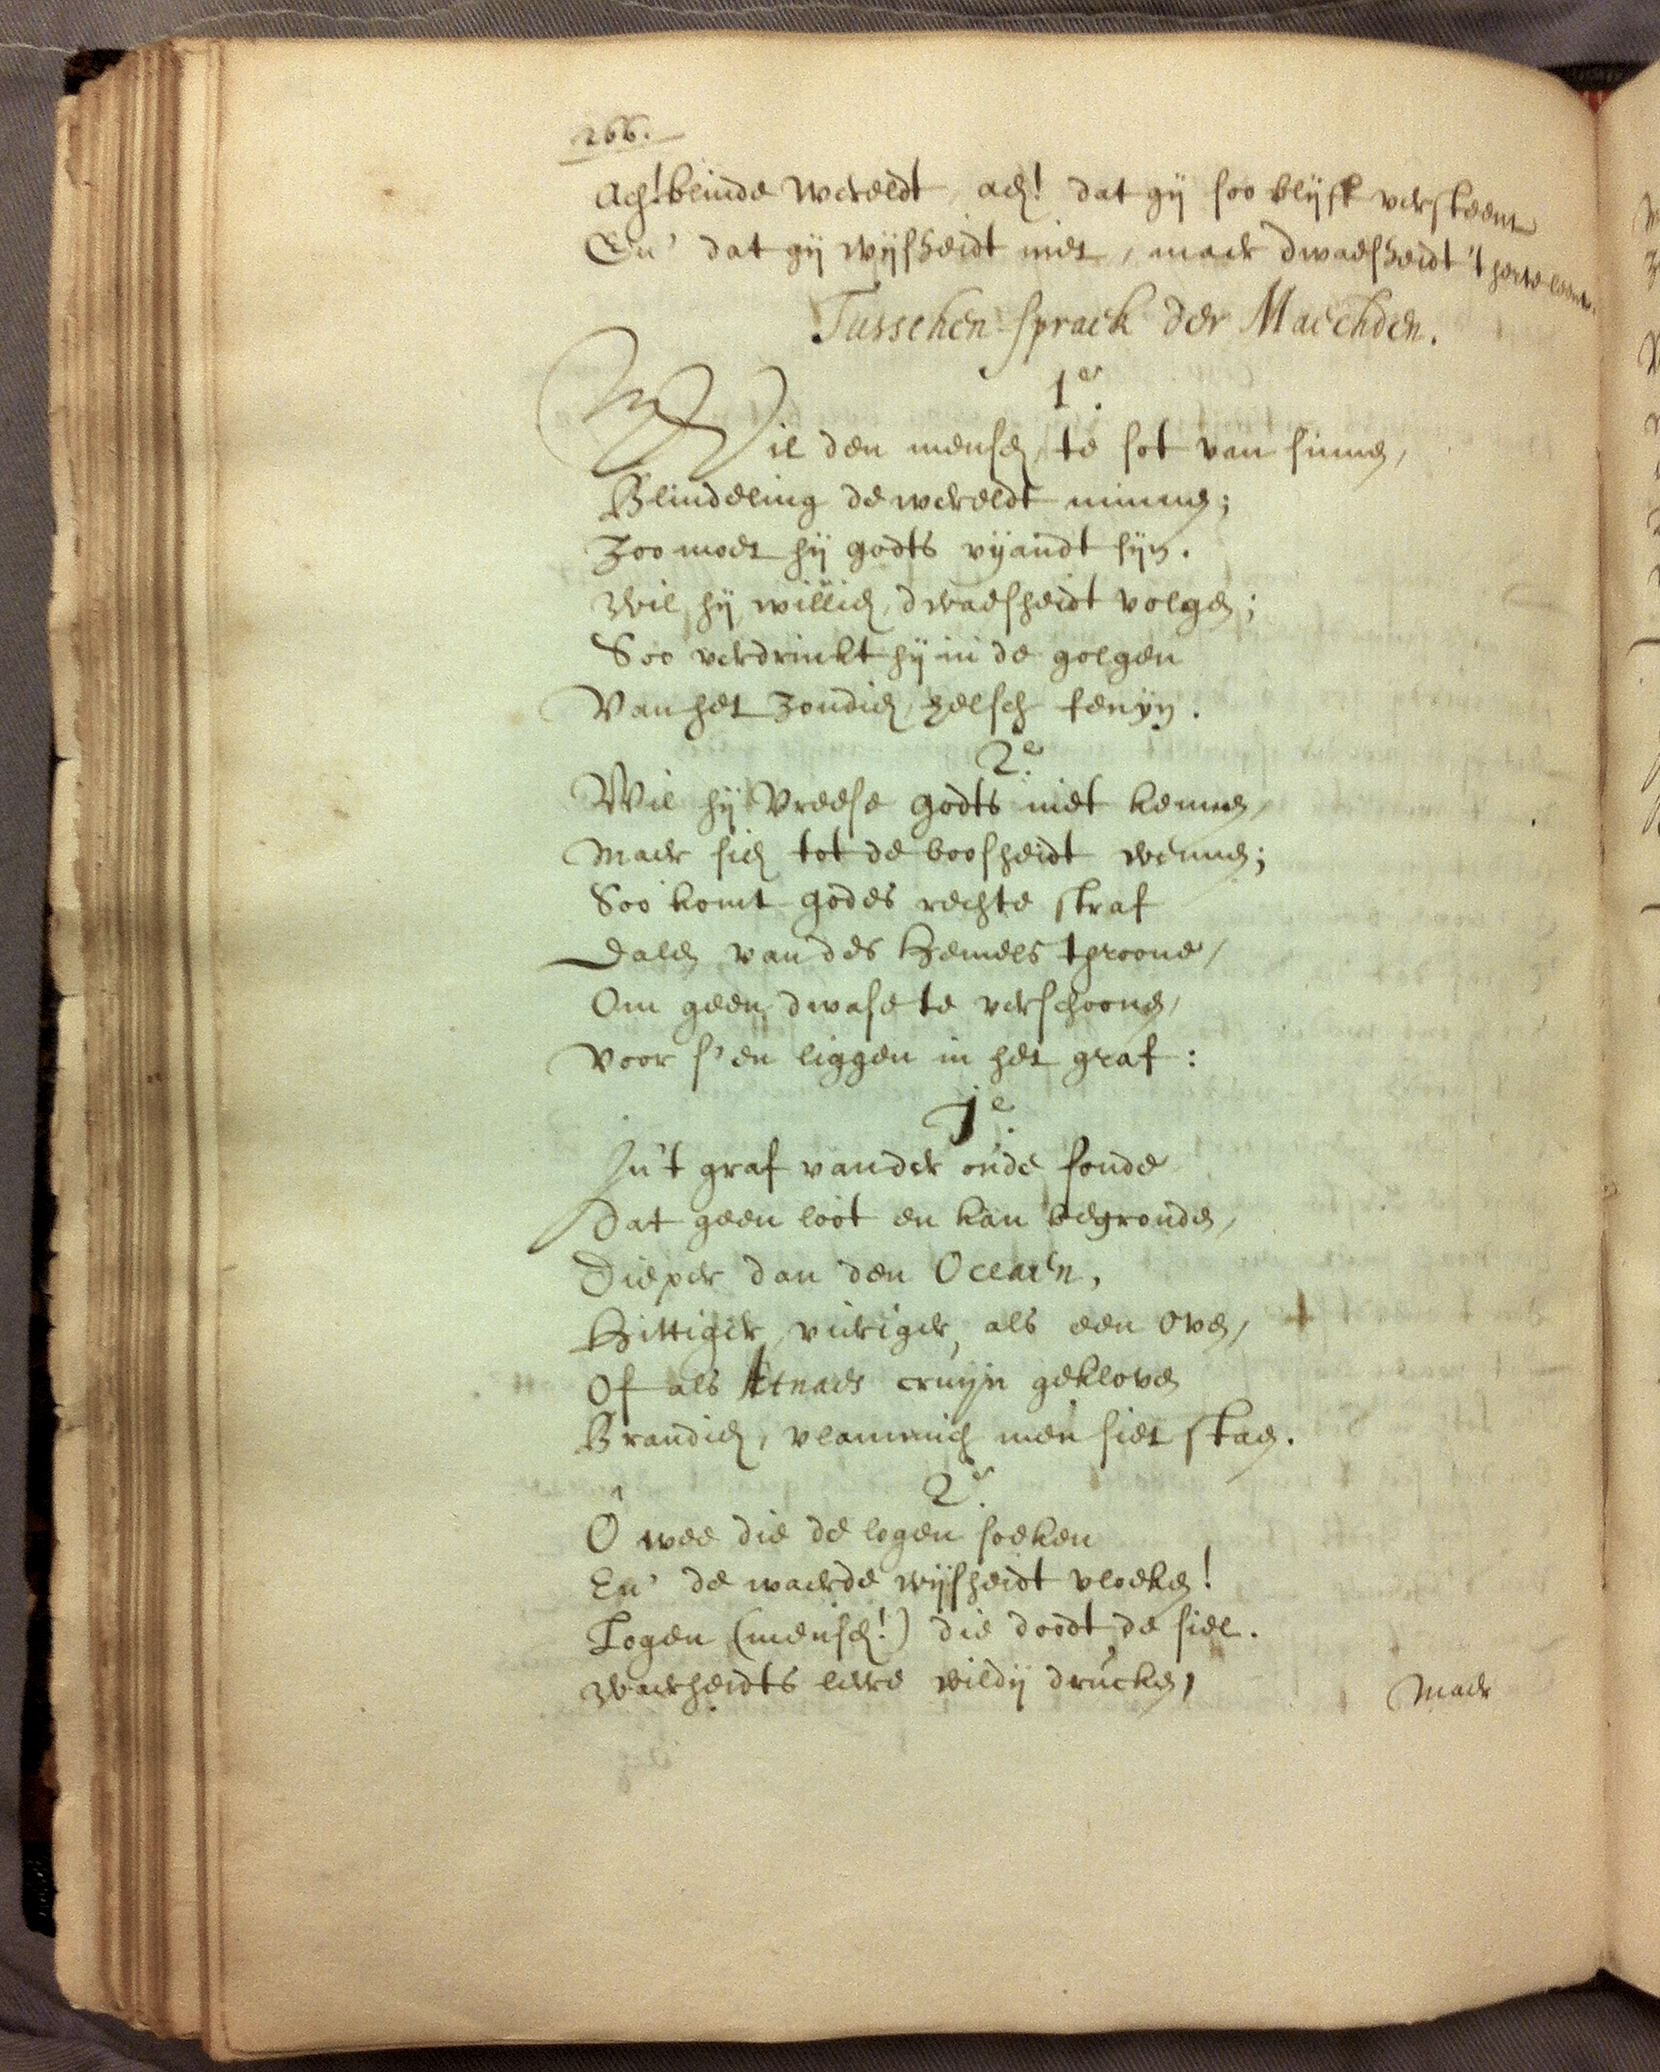 266.
Ach! blinde wereldt, ach! dat gij soo blijft versteent
En' dat gij wijsheidt niet, maer dwaesheidt 't herte leent.
Tusschen-spraek der Maechden.
1e.
Wil den mensch, te sot van sinnen,
Blindeling de wereldt minnen;
Zoo moet hij godts vijandt sijn.
Wil hij willich, dwaesheidt volgen;
Soo verdrinkt hij in de golgen
Van het zondich, helsch fenijn.
2e.
Wil hij Vreese godts niet kennen,
Maer sich tot de boosheidt wennen;
Soo komt godes rechte straf
Dalen van des hemels throone,
Om geen dwase te verschoonen,
Voor s' en liggen in het graf:
1e.
In 't graf van der oude sonde
Dat geen loot en kan begronden,
Dieper dan den Oceaen,
Hittiger, vieriger, als een oven,
Of als Etnaes cruijn gekloven
Brandich, vlammich men siet staen.
2e.
Ô wee die de logen soeken
En' de waerde wijsheidt vloeken!
Logen (mensch!) die doodt de siel.
Waerheidts leere wildij drucken,
Maer